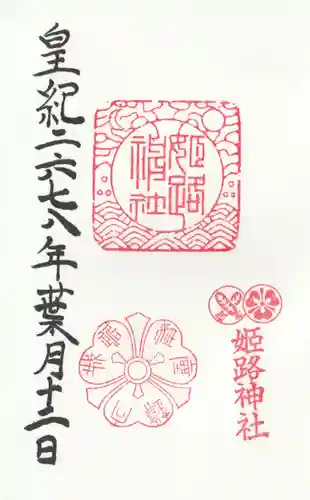 姫路神社
姫路神社
皇紀二六七八年葉月十二日